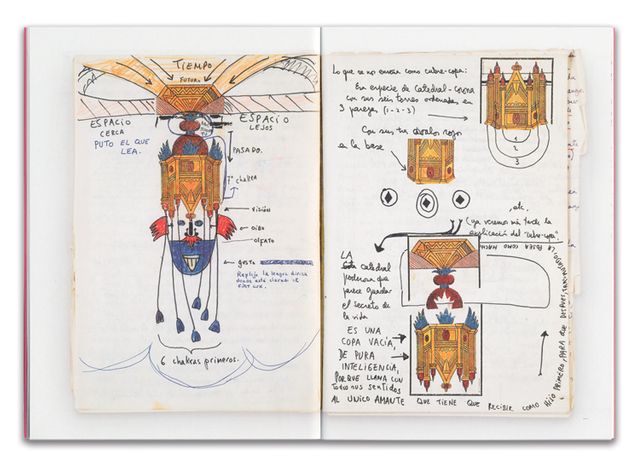 TIEMPO
FUTURO
ESPACIO
CERCA
PUTO EL QUE
LEA.
ESPACIO
LEJOS
PASADO.
7º chakra
VISIÓN
OIDO
OLFATO
GOSTO
Replijo la lengua divina
6 chakras primeros.
Lo que se nos enseña como cubre-copa:
Una especie de Catedral-Corona
con sus seis torres ordenadas en
3 parejas (1-2-3)
1
2
3
Con sus tres óvalos rojos
en la base
etc.
(ya veremos más tarde la
explicación del "cubre-copa")
LA
Catedral
poderosa que
parece guardar
el secreto de
la vida
ES UNA
COPA VACÍA,
DE PURA
INTELIGENCIA,
PORQUE LLAMA CON
TODOS SUS SENTIDOS
AL UNICO AMANTE QUE TIENE QUE RECIBIR COMO
HIJO PRIMERO, PARA QUE DESPUES,
LA POSEA COMO